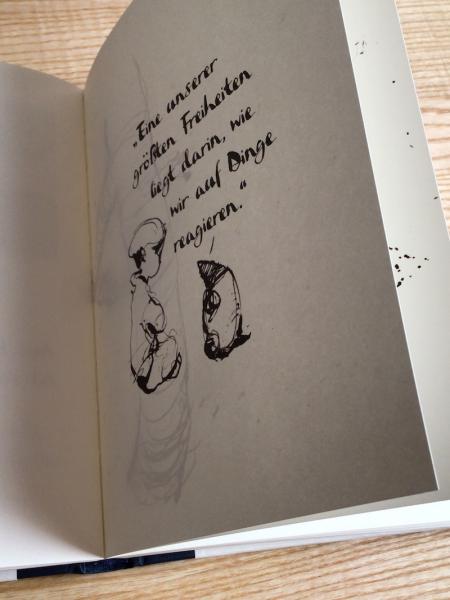 „Eine unserer
größten Freiheiten
liegt darin, wie
wir auf Dinge
reagieren.“